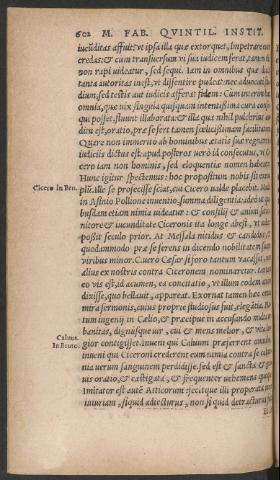 602 M. FAB. QVINTIL. INSTIT.
iucũditas affuit: vt ipsa illa quæ extorquet, impetrare eum
credas: & cum transuersum vi sua iudicem ferat, tamen il
non rapi uideatur, sed sequi. Iam in omnibus quæ dicit
tanta autoritas inest, vt dissentire pudeat: nec aduocati stu
dium, sed testis aut iudicis afferat fidem: Cum interim hæc
omnia, quæ vix singula quisquam intentissima cura conse
qui posset, fluunt illaborata: & illa qua nihil pulchrius au
ditu est, oratio, præ se fert tamen fœlicissimam facilitatem.
Quare non immerito ab hominibus ætatis suæ regnare in
iudiciis dictus est: apud posteros uero id consecutus, vt Ci
cero iam non hominis, sed eloquentiæ nomen habeatur.
Hunc igitur spectemus: hoc propositum nobis sit exem
Cicero in Bru. plũ. ille se profecisse sciat, cui Cicero ualde placebit. Multa
in Asinio Pollione inuentio, summa diligentia: adeo ut qui
busdam etiam nimia uideatur: & consilij & animi satis:
nitore & iucunditate Ciceronis ita longe abest, vt uideri
possit seculo prior. At Messala nitidus & candidus, &
quodammodo præ se ferens in dicendo nobilitatem suam,
viribus minor. C. uero Cæsar si foro tantum vacasset, non
alius ex nostris contra Ciceronem nominaretur. tanta in
eo vis est, id acumen, ea concitatio, vt illum eodem animo
dixisse, quo bellauit, appareat. Exornat tamen hæc omnia
mira sermonis, cuius proprie studiosus fuit, elegãtia. Mul
tum ingenij in Cælio, & præcipue in accusando multa vr
banitas, dignusque uir, cui & mens melior, & vita lon
Caluus. gior contigisset. Inueni qui Caluum præferrent omnibus,
In Bruto. inueni qui Ciceroni crederent eum nimia contra se calum
nia uerum sanguinem perdidisse. sed est & sancta & gra
uis oratio, & castigata, & frequenter uehemens quoque.
Imitator est autẽ Atticorum: fecitque illi properata mors
iniuriam, si quid adiecturus, non si quid detracturus fuit.